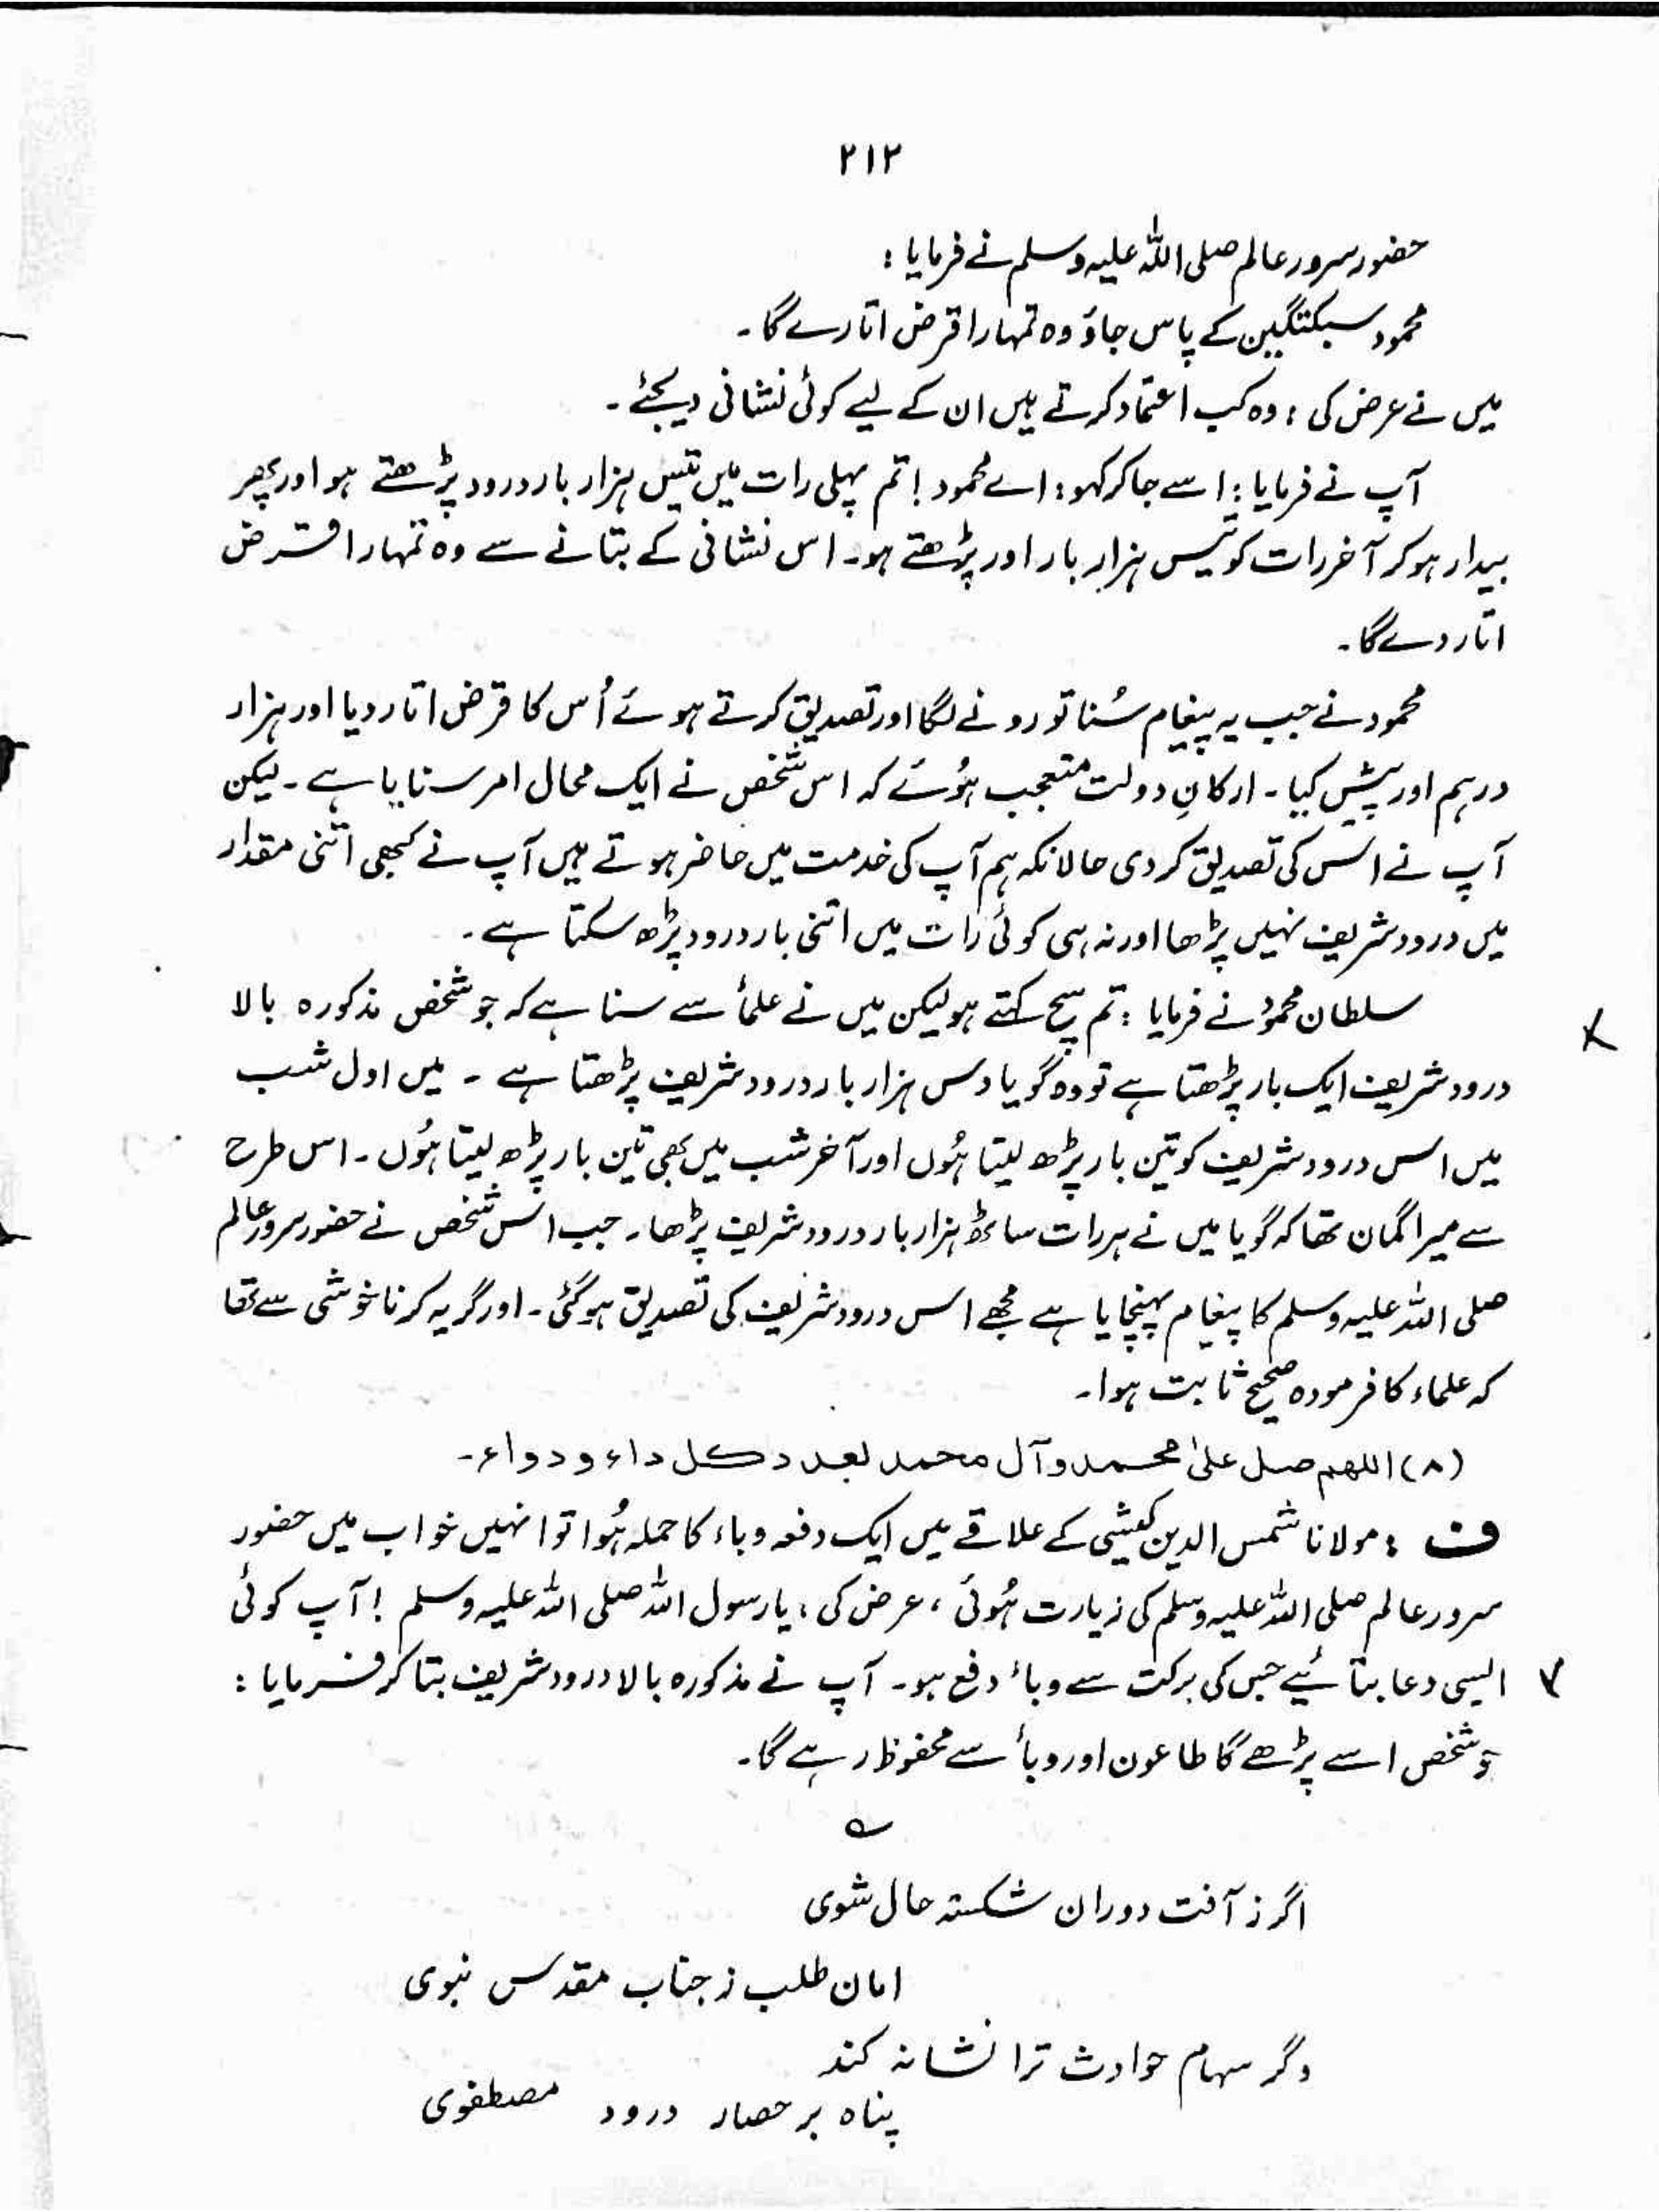 ۲۱۲
حضور سرور عالم صلی اللہ علیہ وسلم نے فرمایا :
محمود سبکتگین کے پاس جاؤ وہ تمہارا قرض اتارے گا ۔
میں نے عرض کی : وہ کب اعتماد کرتے ہیں ان کے لیے کوئی نشانی دیجئے ۔
آپ نے فرمایا : اسے جا کر کہو : اے محمود ! تم پہلی رات میں تیس ہزار بار درود پڑھتے ہو اور پھر
بیدار ہو کر آخر رات کو تیس ہزار بار اور پڑھتے ہو ۔ اس نشانی کے بتانے سے وہ تمہارا قرض
اتار دے گا ۔
محمود نے جب یہ پیغام سُنا تو رونے لگا اور تصدیق کرتے ہوئے اُس کا قرض اتار دیا اور ہزار
درہم اور پیش کیا ۔ ارکانِ دولت متعجب ہُوئے کہ اس شخص نے ایک محال امر سنایا ہے ۔ لیکن
آپ نے اس کی تصدیق کر دی حالانکہ ہم آپ کی خدمت میں حاضر ہوتے ہیں آپ نے کبھی اتنی مقدار
میں درود شریف نہیں پڑھا اور نہ ہی کوئی رات میں اتنی بار درود پڑھ سکتا ہے ۔
سلطان محمودؒ نے فرمایا : تم سچ کہتے ہو لیکن میں نے علماُ سے سنا ہے کہ جو شخص مذکورہ بالا
درود شریف ایک بار پڑھتا ہے تو وہ گویا دس ہزار بار درود شریف پڑھتا ہے ۔ میں اول شب
میں اس درود شریف کو تین بار پڑھ لیتا ہُوں اور آخر شب میں بھی تین بار پڑھ لیتا ہُوں ۔ اس طرح
سے میرا گمان تھا کہ گویا میں نے ہر رات ساٹھ ہزار بار درود شریف پڑھا ۔ جب اس شخص نے حضور سرور عالم
صلی اللہ علیہ وسلم کا پیغام پہنچایا ہے مجھے اس درود شریف کی تصدیق ہو گئی ۔ اور گریہ کرنا خوشی سے تھا
کہ علماء کا فرمودہ صحیح ثابت ہوا ۔
(۸) اللهم صل علیٰ محمد و آل محمد بعدد کل داء و دواء ۔
ف : مولانا شمس الدین کیشی کے علاقے میں ایک دفعہ وباء کا حملہ ہُوا تو انہیں خواب میں حضور
سرور عالم صلی اللہ علیہ وسلم کی زیارت ہُوئی ، عرض کی ، یا رسول اللہ صلی اللہ علیہ وسلم ! آپ کوئی
ایسی دعا بتائیے جس کی برکت سے وباُ دفع ہو ۔ آپ نے مذکورہ بالا درود شریف بتا کر فرمایا :
شخص اسے پڑھے گا طاعون اور وباُ سے محفوظ رہے گا ۔
اگر ز آفت دوران شکستہ حال شوی
امان طلب ز جناب مقدس نبوی
وگر سہام حوادث ترا نشانہ کند
پناہ بر حصار درود مصطفوی